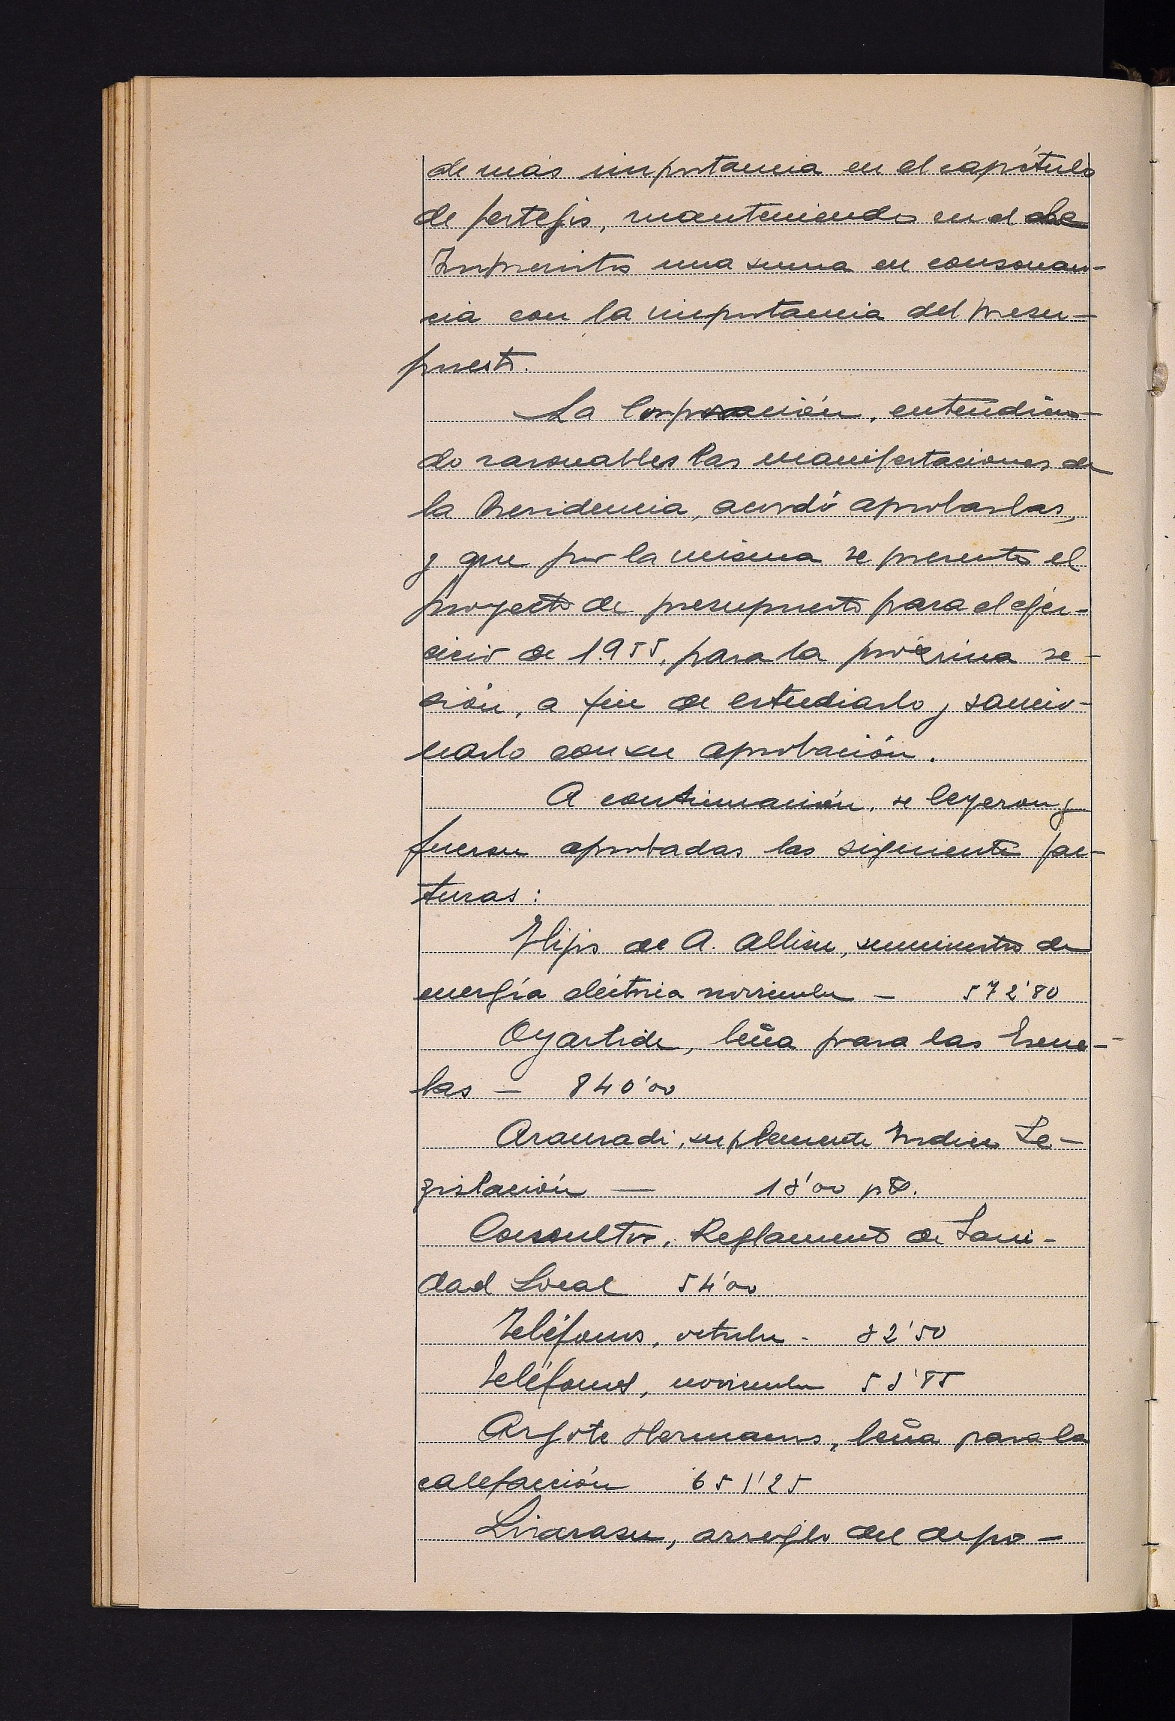 de más importancia en el capítulo
de festejos, manteniendo en el de
Imprevistos una suma en consonan-
cia con la importancia del presu-
puesto.
La Corporación, entendien-
do razonables las manifestaciones de
la Presidencia, acordó aprobarlas,
y que por la misma se presente el
proyecto de presupuesto para el ejer-
cicio de 1.955, para la próxima se-
sión, a fin de estudiarlo y sancio-
narlo con su aprobación.
A continuación, se leyeron y
fueron aprobadas las siguientes fac-
turas:
Hijos de A. Albisu, suministro de
energía eléctrica noviembre — 572'80
Oyartide, leña para las Escue-
las — 840'00
Aranzadi, suplemento Indice Le-
gislación — 18'00 pts.
Consultor, Reglamento de Sani-
dad Local 54'00
Teléfonos, octubre - 82'50
Teléfonos, noviembre
Argote Hermanos, leña para la
calefacción 651'25
arreglo del depo-